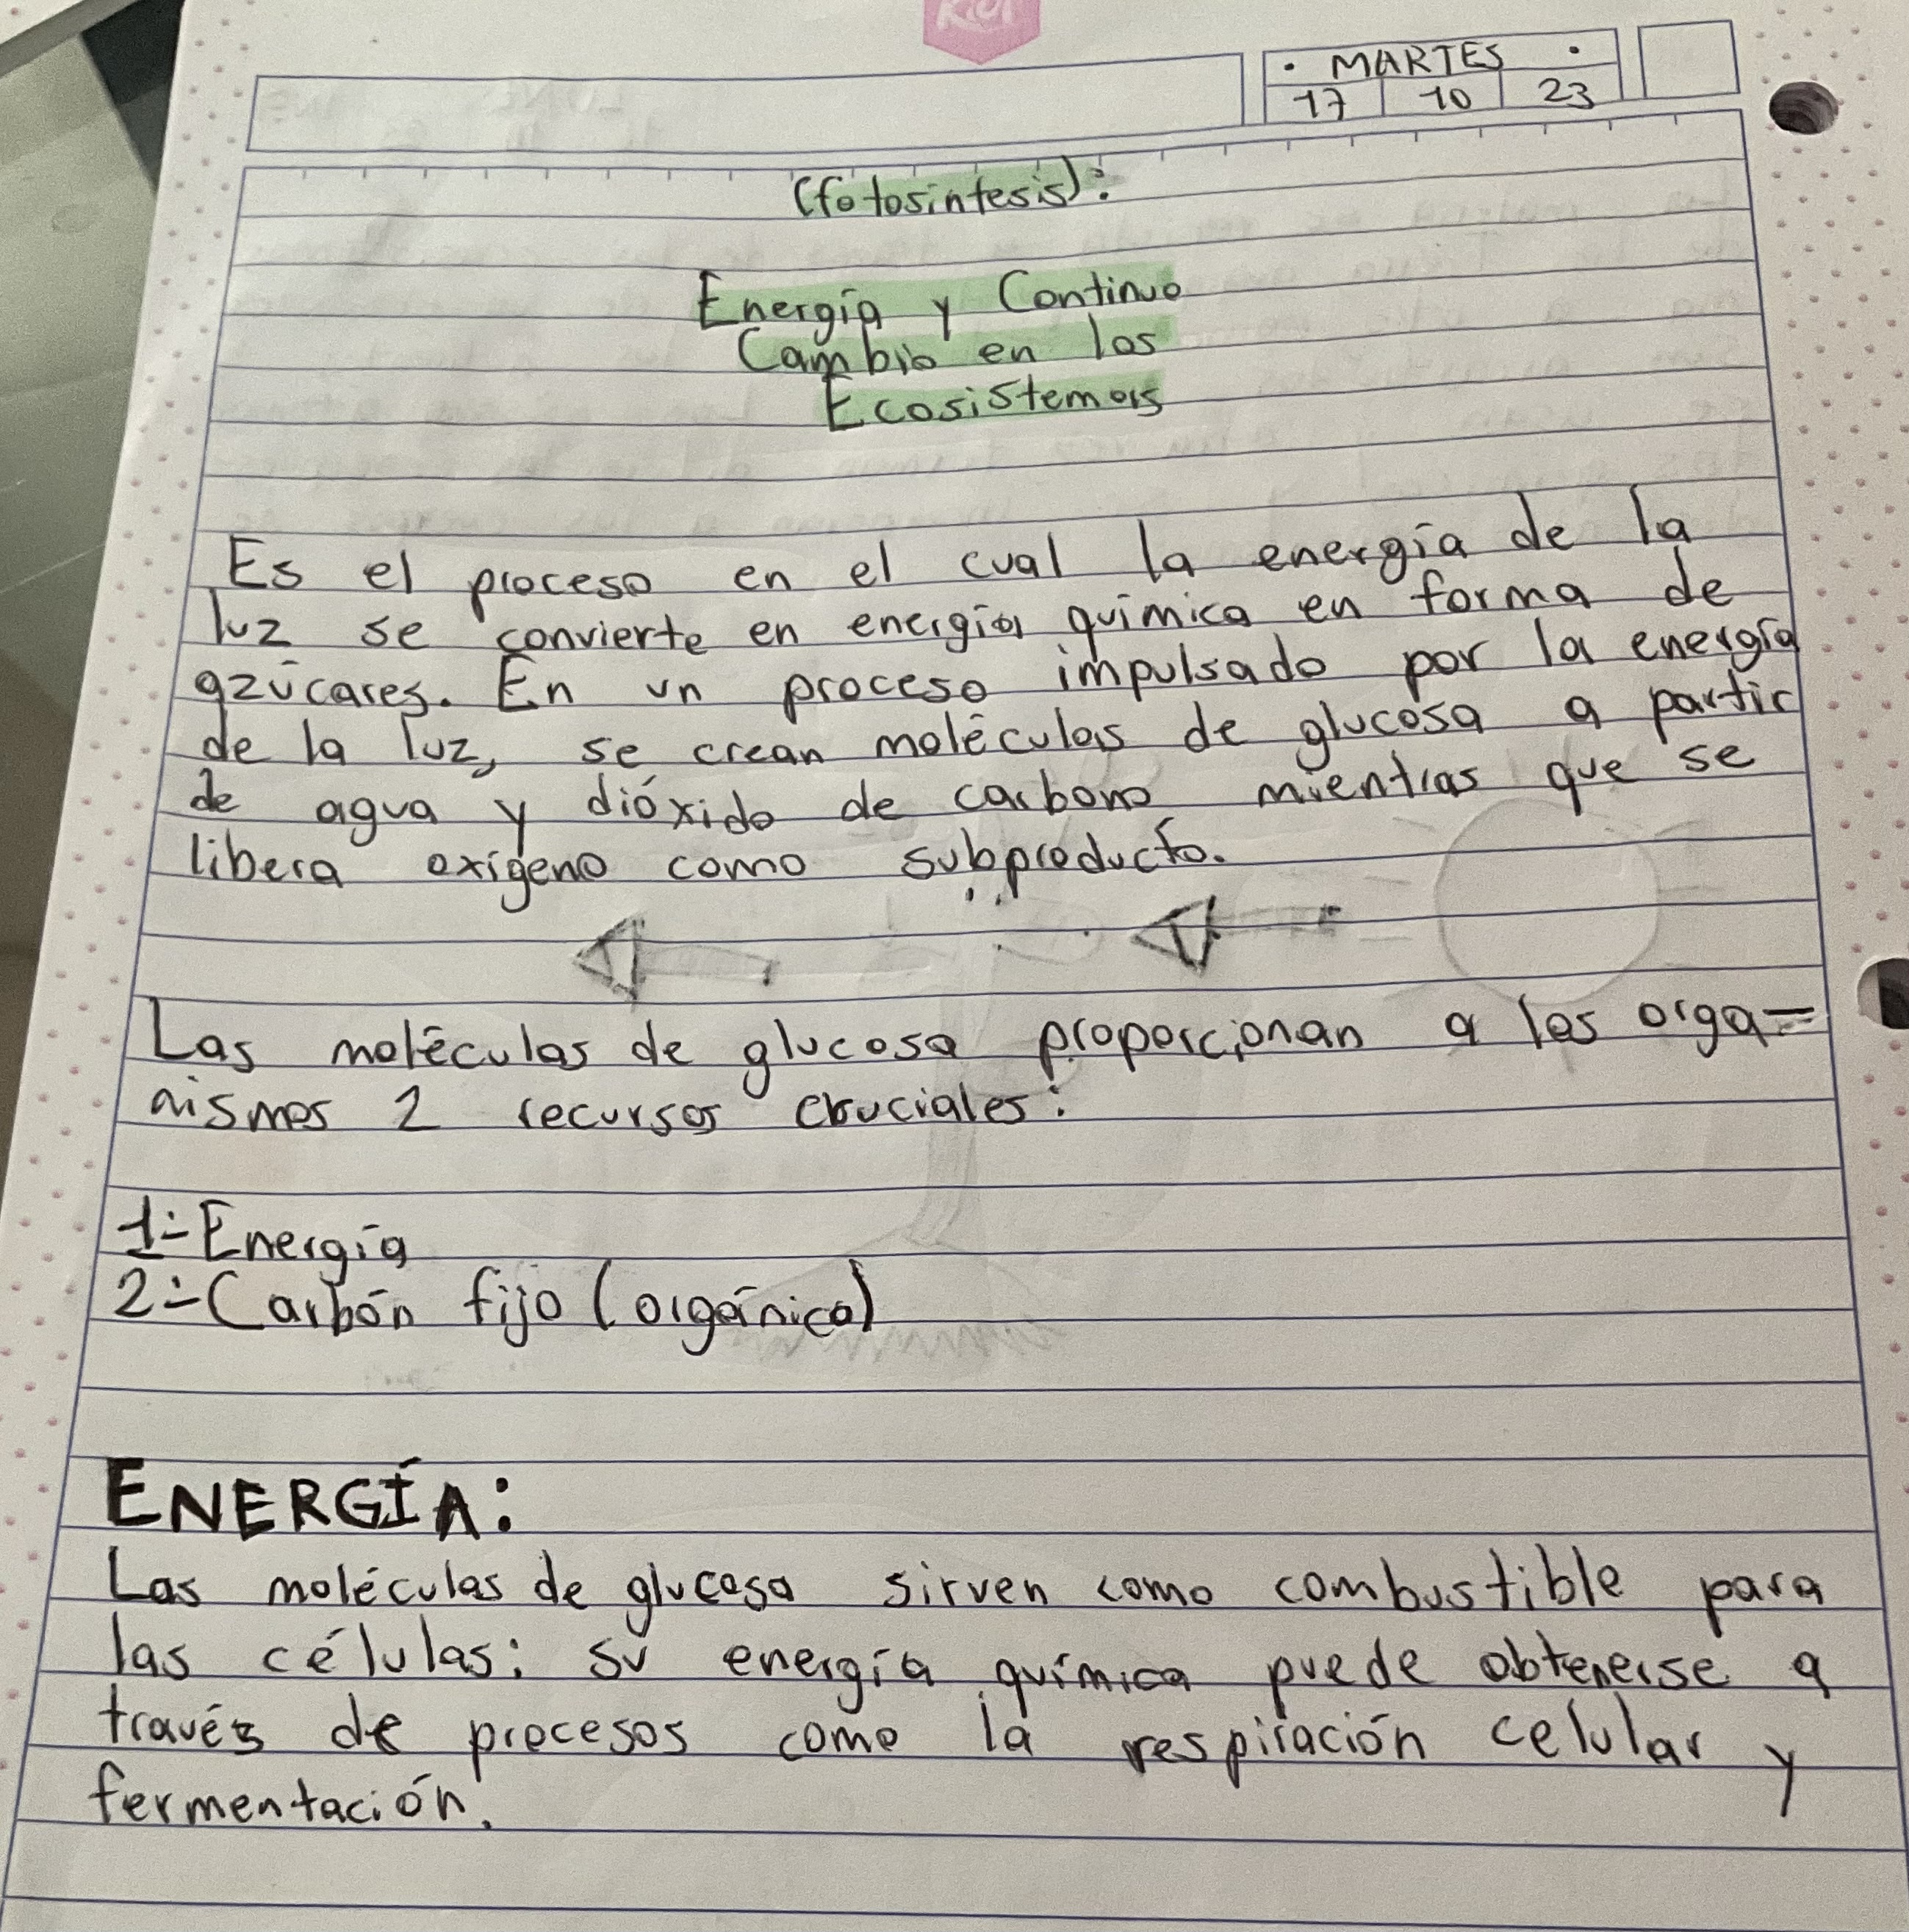 Kiut
MARTES
17 10 23
(fotosíntesis):
Energía y Continuo
Cambio en los
Ecosistemas
Es el proceso en el cual la energía de la
luz se convierte en energía química en forma de
azúcares. En un proceso impulsado por la energía
de la luz, se crean moléculas de glucosa a partir
de agua y dióxido de carbono mientras que se
libera oxígeno como subproducto.
Las moléculas de glucosa proporcionan a los orga=
nismos 2 recursos cruciales:
1÷Energía
2÷Carbón fijo (orgánico)
ENERGÍA:
Las moléculas de glucosa sirven como combustible para
las células: su energía química puede obtenerse a
través de procesos como la respiración celular y
fermentación.